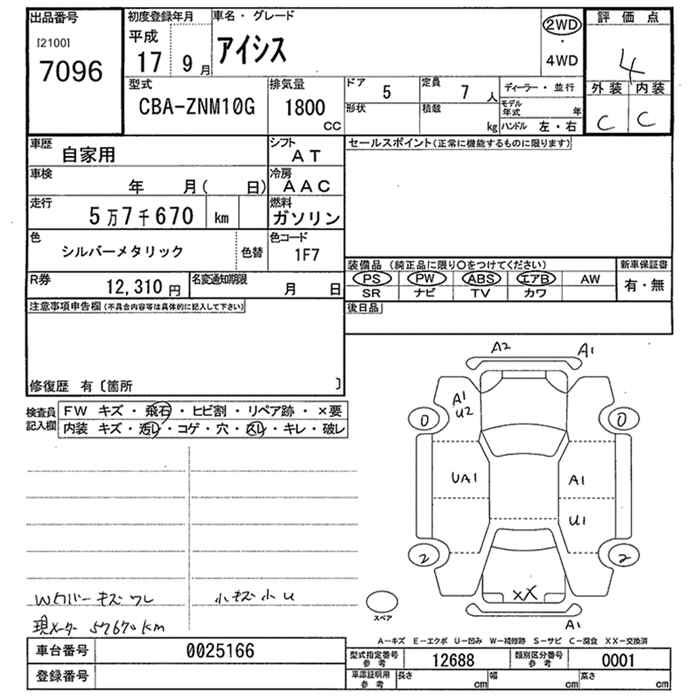 出品番号
[2100]
7096
初度登録年月
平成
17 9 月
車名 ・ グレード
アイシス
2WD
・
4WD
評 価 点
4
外装 内装
C C
型式
CBA-ZNM10G
排気量
1800
CC
ドア 5
定員 7 人
形状
積載 kg
ディーラー ・ 並行
モデル年式 年
ハンドル 左 ・ 右
車歴 自家用
シフト AT
車検 年 月( 日)
冷房 AAC
走行 5万7千670 km
燃料 ガソリン
色 シルバーメタリック 色替
色コード 1F7
R券 12,310 円
名変通知期限 月 日
セールスポイント(正常に機能するものに限ります)
装備品 (純正品に限り○をつけてください)
PS PW ABS エアB AW
SR ナビ TV カワ
新車保証書
有 ・ 無
後日品
注意事項申告欄(不具合内容等は具体的に記入して下さい)
修復歴 有〔箇所 〕
検査員記入欄
FW キズ ・ 飛石 ・ ヒビ割 ・ リペア跡 ・ ×要
内装 キズ ・ 汚レ ・ コゲ ・ 穴 ・ スレ ・ キレ ・ 破レ
A2 A1
A1
U2
0 0
UA1 A1
U1
2 2
XX
A1
スペア
Wカバーキズ ワレ
小キズ小U
現メーター 57670km
A−キズ E−エクボ U−凹み W−補修跡 S−サビ C−腐食 XX−交換済
車台番号 0025166
登録番号
型式指定番号 参考 12688
類別区分番号 参考 0001
車庫証明用 参考 長さ cm 幅 cm 高さ cm